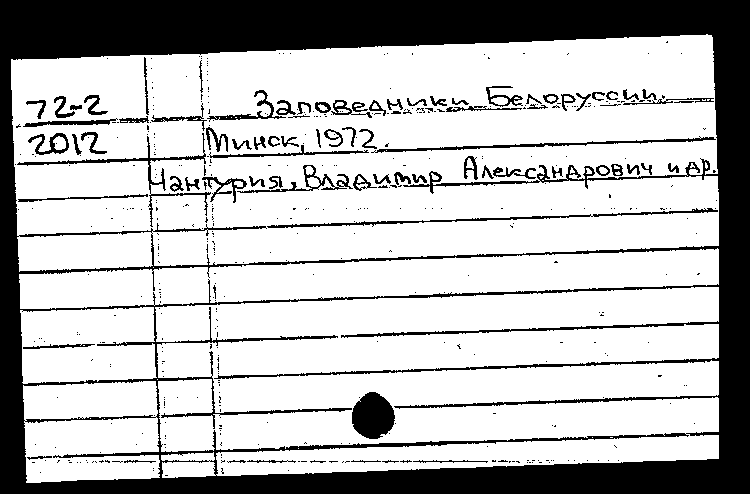 72-2 Заповедники Белоруссии.
2012 Минск, 1972.
Чантурия, Владимир Александрович и др.